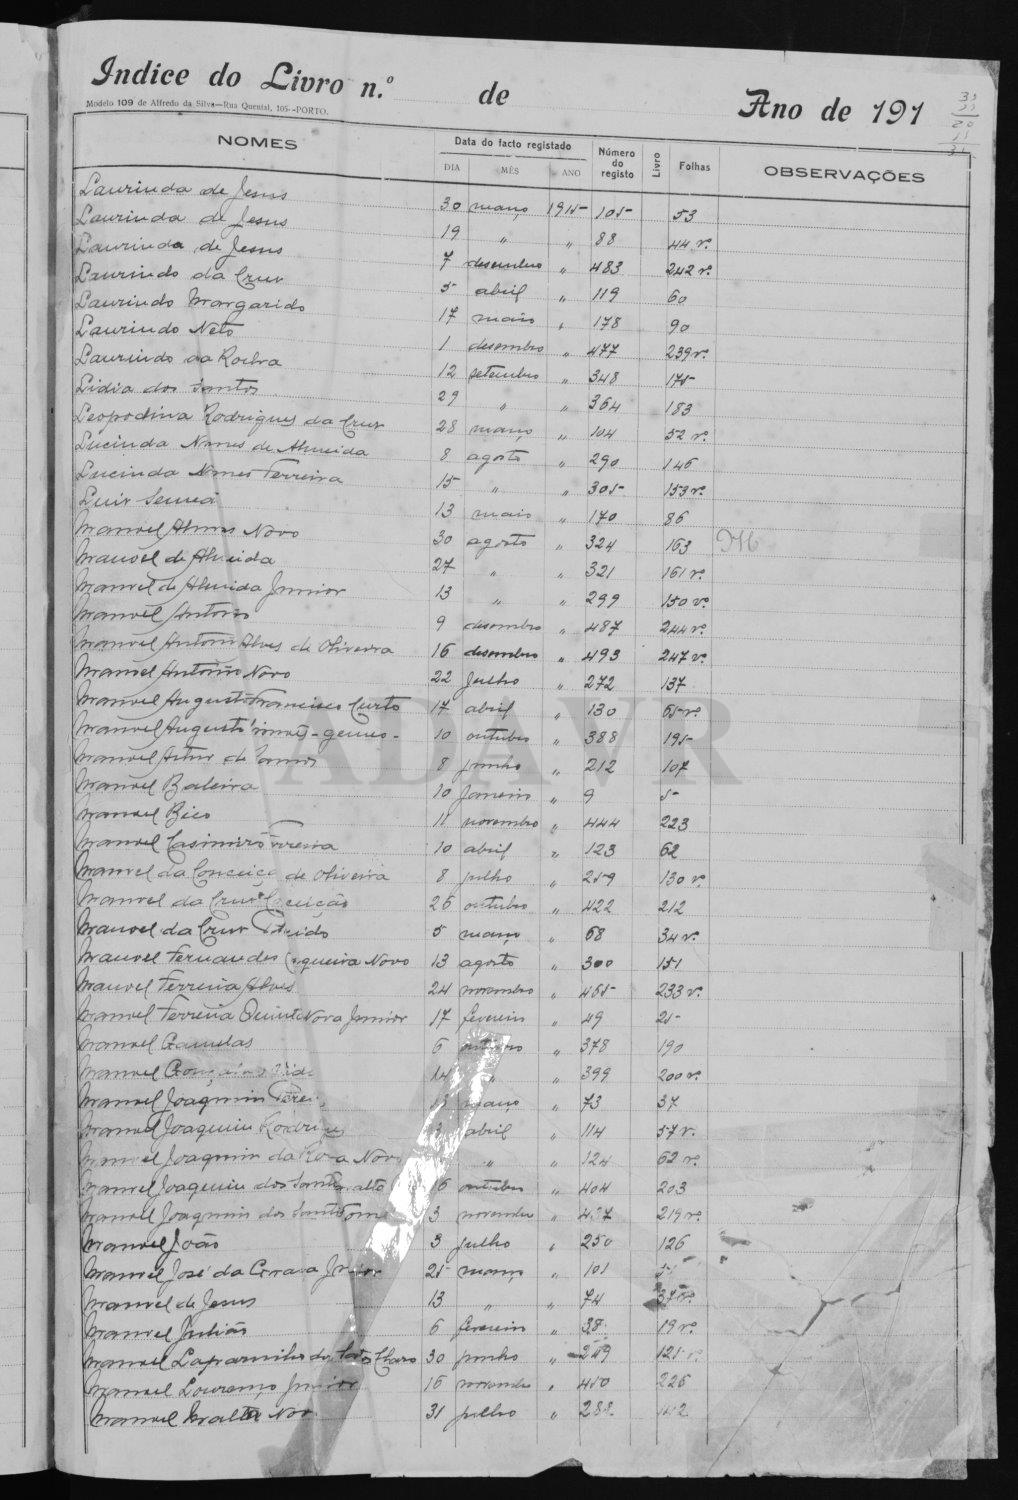 Indice do Livro n.º de Ano de 191
Modelo 109 de Alfredo da Silva—Rua Quental, 105--PORTO.
NOMES Data do facto registado DIA MÊS ANO Número do registo Livro Folhas OBSERVAÇÕES
Laurinda de Jesus 30 março 1915 105 53
Laurinda de Jesus 19 " " 88 44 v.
Laurinda de Jesus 7 desembro " 483 242 v.
Laurindo da Cruz 5 abril " 119 60
Laurindo Margarido 17 maio " 178 90
Laurindo Neto 1 desembro " 477 239 v.
Laurindo da Rocha 12 setembro " 348 175
Lidia dos Santos 29 " " 364 183
Leopodina Rodrigues da Cruz 28 março " 104 52 v.
Lucinda Nunes de Almeida 8 agosto " 290 146
Lucinda Nunes Ferreira 15 " " 305 153 v.
Luiz 13 maio " 170 86
Manoel Novo 30 agosto " 324 163
Manoel de Almeida 27 " " 321 161 v.
Manoel de Almeida Junior 13 " " 299 150 v.
Manoel Antonio 9 desembro " 487 244 v.
Manoel Antonio Alves de Oliveira 16 desembro " 493 247 v.
Manoel Antonio Novo 22 julho " 272 137
Manoel Augusto Francisco Curto 17 abril " 130 65 v.
Manoel Augusto - gemeo - 10 outubro " 388 195
Manoel Artur de 8 junho " 212 107
Manoel 10 Janeiro " 9 5
Manoel Bico 11 novembro " 444 223
Manoel Casimiro Ferreira 10 abril " 123 62
Manoel da Conceição de Oliveira 8 julho " 259 130 v.
Manoel da Cruz Conceição 26 outubro " 422 212
Manoel da Cruz 5 março " 68 34 v.
Manoel Fernandes Cerqueira Novo 13 agosto " 300 151
Manoel Ferreira Alves 24 novembro " 465 233 v.
Manoel Ferreira Quinta Nova Junior 17 fevereiro " 49 25
Manoel Gamelas 6 outubro " 378 190
Manoel 14 " " 399 200 v.
Manoel Joaquim março " 73 37
Manoel Joaquim Rodrigues abril " 114 57 v.
Manoel Joaquim da Rosa Novo " " 124 62 v.
Manoel Joaquim dos Santos 6 outubro " 404 203
Manoel Joaquim dos Santos 3 novembro " 437 219 v.
Manoel João 3 julho " 250 126
Manoel José da Junior 25 março " 101 51
Manoel de Jesus 13 " " 74 37 v.
Manoel Julião 6 fevereiro " 38 19 v.
Manoel 30 junho " 249 125 v.
Manoel Lourenço Junior 16 novembro " 450 226
Manoel Malta Novo 31 julho " 282 142